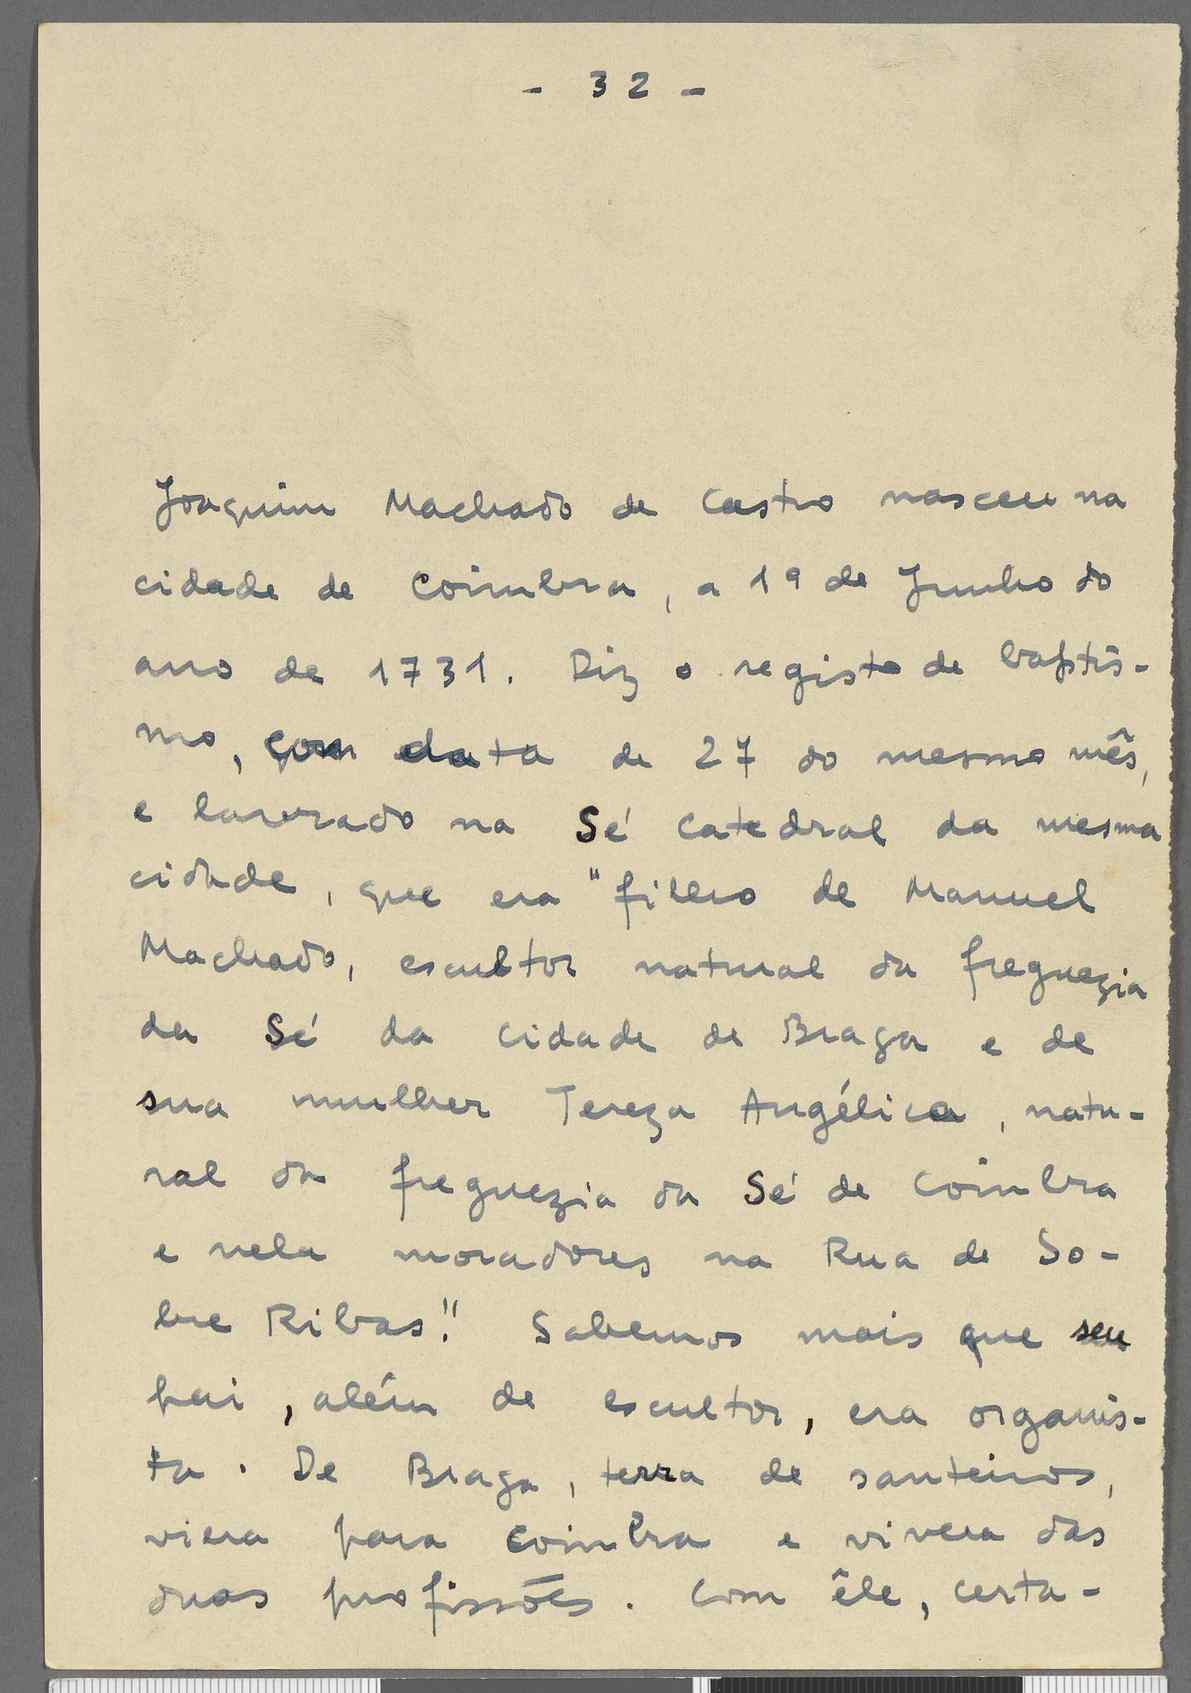 - 32 -
Joaquim Machado de Castro nasceu na
cidade de Coimbra, a 19 de Junho do
ano de 1731. Diz o registo de baptis-
mo, com data de 27 do mesmo mês,
e lavrado na Sé Catedral da mesma
cidade, que era "filho de Manuel
Machado, escultor natural da freguezia
da Sé da cidade de Braga e de
sua mulher Tereza Angélica, natu-
ral da freguezia da Sé de Coimbra
e nela moradores na Rua de So-
bre Ribas". Sabemos mais que seu
pai, além de escultor, era organis-
ta. De Braga, terra de santeiros,
viera para Coimbra e vivera das
duas profissões. Com êle, certa-